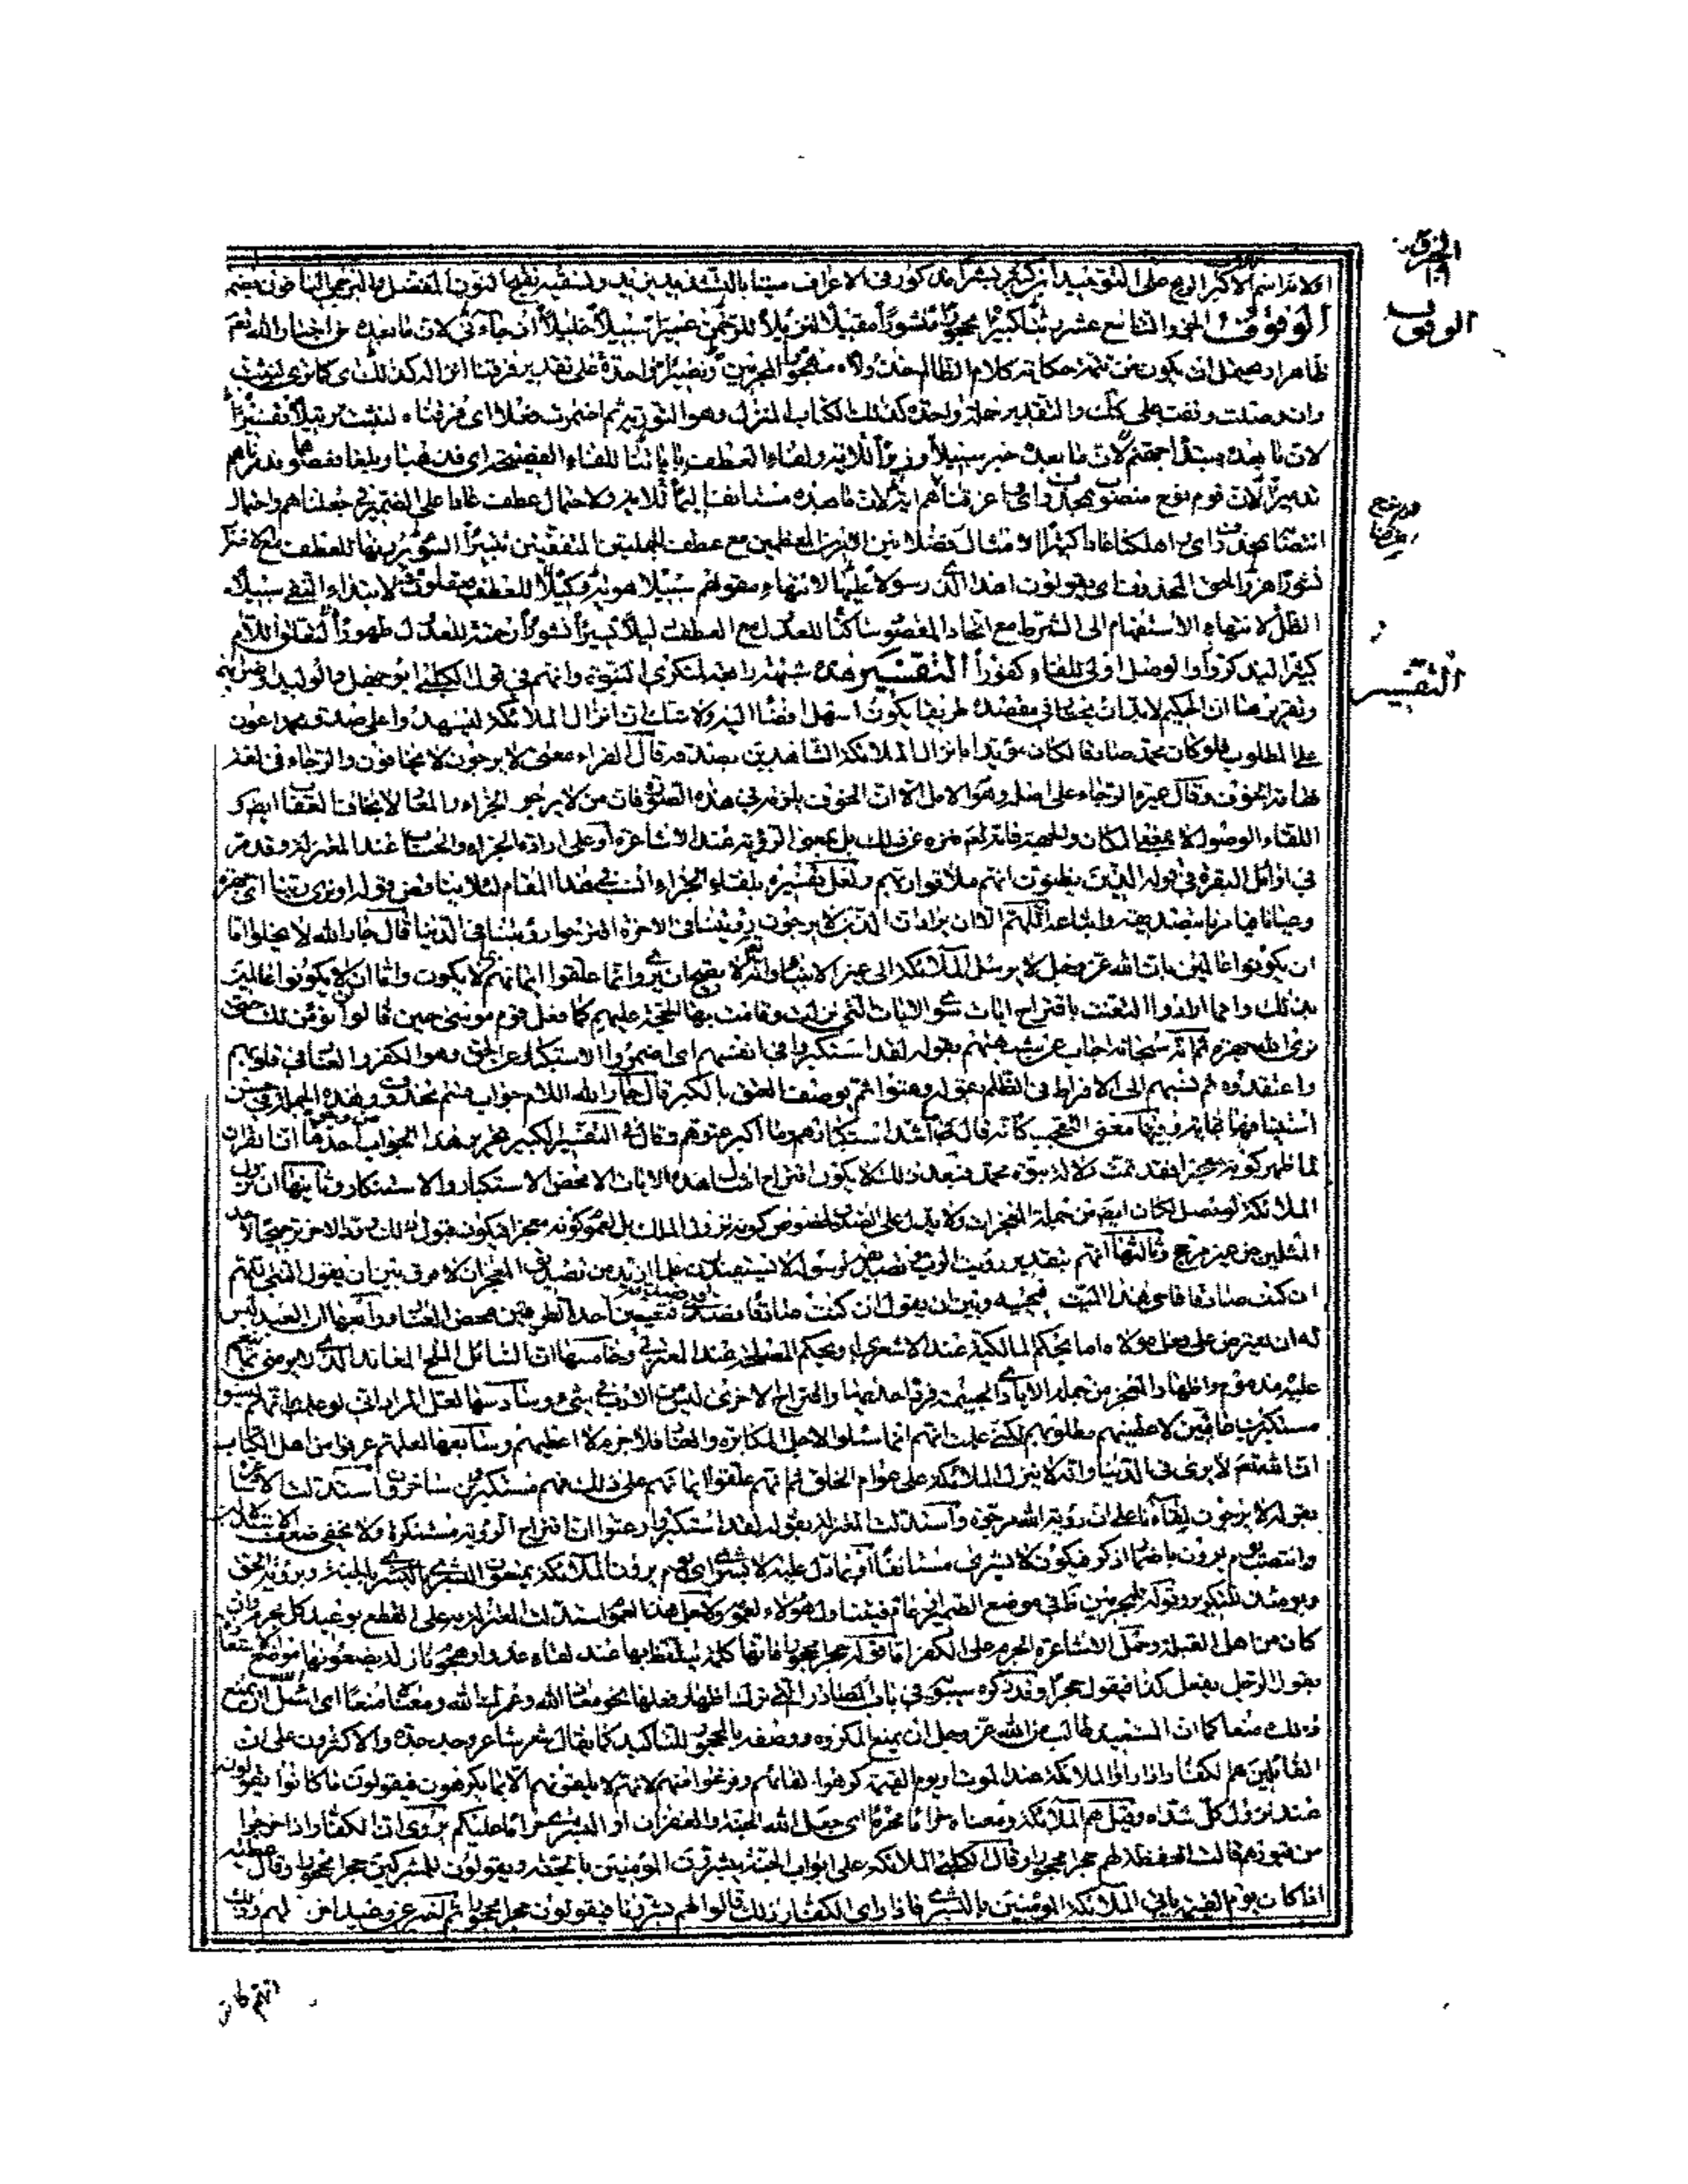 الجزء
١٩
الوقوف
الوقوف الجزء التاسع عشر ربنا ط كبيرا محجورا منثورا مقيلا تنزيلا للرحمن عسيرا سبيلا خليلا جاءني لان ما بعده من اخبار الله تعم
ظاهرا ويحتمل ان يكون من تتمة حكاية كلام الظالم خذولا مهجورا المجرمين ونصيرا واحدة على تقدير فرقنا انزاله كذلك
وان وصلت وقفت على كذلك والتقدير جملة واحدة كذلك الكتاب المنزل وهو التورية ثم اضمرت فعلا اى فرقناه لنثبت ترتيلا تفسيرا
لان ما بعده مبتدأ جهنم لان ما بعده خبر سبيلا وزيرا للآية ولفاء العطف باياتنا للفاء الفصيحة اى فذهبا وبلغا فعصوهما فدمرناهم
تدميرا لان قوم نوح منصوب بمحذوف اى اغرقنا اية لان ما بعده مستانف اليما للآية ولاحتمال عطف عادا على الضمير في جعلناهم واحتمال
انتصابه بمحذوف اى اهلكنا عادا كثيرا الامثال فصلا بين الامرين المعظمين مع عطف الجملتين المتفقتين تتبيرا السوء يرونها للعطف مع
نشورا هزوا لحق المحذوف اى يقولون اهذا الذى رسولا عليها لانتهاء مقولهم سبيلا هويه وكيلا للعطف يعقلون لابتداء النفى سبيلا
الظل لانتهاء الاستفهام الى الشرط مع اتحاد المقصود ساكنا للعدول مع العطف دليلا يسيرا نشورا رحمته للعدول طهورا لتعلق اللام
كثيرا ليذكروا والوصل اولى للفاء كفورا التفسير هذه شبهة رابعة لمنكرى النبوة وانهم في قول الكلبي ابو جهل والوليد واضرابهم
التفسير
وتقريرها ان الحكيم لا بد ان يختار في مقصده طريقا يكون اسهل افضاء اليه ولا شك ان انزال الملائكة ليشهدوا على صدق محمد اعون
على المطلوب فلو كان محمد صادقا لكان مؤيدا بانزال الملائكة الشاهدين بصدقه قال الفراء معنى لا يرجون لا يخافون والرجاء في لغة
تهامة الخوف وقال غيره الرجاء على اصله وهو الامل الا ان الخوف يلزمه في هذه الصورة فان من لا يرجو الجزاء والمعاد لا يخاف العقاب ايضا ثم
اللقاء الوصول لا بمعنى المكان والجهة فانه تعالى منزه عن ذلك بل بمعنى الرؤية عند الاشاعرة او على ارادة الجزاء والحساب عند المعتزلة وقد مر
في اوائل البقرة في قوله الذين يظنون انهم ملاقوا ربهم ولعل تفسيره بلقاء الجزاء انسب في هذا المقام لئلا يناقض قوله او نرى ربنا اى جهرة
وعيانا فيامرنا بتصديقه واتباعه اللهم الا ان يراد ان الذين لا يرجون رؤيتنا في الآخرة اقترحوا رؤيتنا في الدنيا قال جار الله لا يخلوا اما
ان يكونوا عالمين بان الله عز وجل لا يرسل الملائكة الى غير الانبياء وانه لا يصح ان يرى وانما علقوا ايمانهم بما لا يكون واما ان لا يكونوا عالمين
بذلك وانما ارادوا التعنت باقتراح ايات سوى الايات التى نزلت وقامت بها الحجة عليهم كما فعل قوم موسى حين قالوا لن نؤمن لك حتى
نرى الله جهرة ثم انه سبحانه اجاب عن شبهتهم بقوله لقد استكبروا في انفسهم اى اضمروا الاستكبار عن الحق وهو الكفر والعناد في قلوبهم
واعتقدوه ثم نسبهم الى الافراط في الظلم بقوله وعتوا ثم بوصف العتو بالكبر قال جار الله اللام جواب قسم محذوف وهذه الجملة في حسن
استينافها غاية وفيها معنى التعجب كانه قال ما اشد استكبارهم وما اكبر عتوهم وقال في التفسير الكبير تحرير هذا الجواب من وجوه احدها ان القران
لما ظهر كونه معجزا فقد تمت دلالة نبوة محمد فبعد ذلك لا يكون اقتراح امثال هذه الايات الا محض الاستكبار والاستنكار وثانيها ان نزول
الملائكة لو حصل لكان ايضا من جملة المعجزات ولا يدل على الصدق لخصوص كونه نزول الملك بل لعموم كونه معجزا فيكون قبول ذلك ورد الآخر ترجيحا لاحد
المثلين من غير مرجح وثالثها انهم بتقدير رؤية الرب وتصديقه لرسوله لا يستفيدون علما ازيد من تصديق المعجزات لا فرق بين ان يقول النبى اللهم
ان كنت صادقا فاحى هذا الميت فيحييه وبين ان يقول ان كنت صادقا فصدقنى فتعيين احد الطرفين محض العناد ورابعها ان العبد ليس
له ان يعترض على فعل مولاه اما بحكم المالكية عند الاشعرى او بحكم المصلحة عند المعتزلى وخامسها ان السائل الملح المعاند الذى لا يرضى بما ينعم
عليه مذموم واظهار المعجز من جملة الايادى الجسيمة فرد احديهما واقتراح الاخرى ليس من الادب في شئ وسادسها لعل المراد انى لو علمت انهم ليسوا
مستكبرين عاتين لاعطيتهم مطلوبهم لكنى علمت انهم انما سئلوا لاجل المكابرة والعناد فلا جرم لا اعطيهم وسابعها لعلهم عرفوا من اهل الكتاب
ان الله تعالى لا يرى في الدنيا وانه لا ينزل الملائكة على عوام الخلق ثم انهم علقوا ايمانهم على ذلك فهم مستكبرون ساخرون استدلت الاشاعرة
بقوله لا يرجون لقاءنا على ان رؤية الله مرجوة واستدلت المعتزلة بقوله لقد استكبروا وعتوا ان اقتراح الرؤية مستنكرة ولا يخفى ضعف الاستدلالين
وانتصب يوم يرون باضمار اذكر فيكون لا بشرى مستانفا او بما دل عليه لا بشرى اى يوم يرون الملائكة يمنعون البشرى
ويومئذ للتكرير وقوله للمجرمين ظاهر في موضع الضمير او عام فيتناول هؤلاء لعمومه ولاجل هذا العموم استدلت المعتزلة به على القطع بوعيد كل مجرم وان
كان من اهل القبلة وحمل الاشاعرة المجرم على الكفر اما قوله حجرا محجورا فانها كلمة يتلفظ بها عند لقاء عدو او هجوم نازلة يضعونها موضع الاستعاذة
يقول الرجل يفعل كذا فيقول حجرا وقد ذكره سيبويه في باب المصادر التى ترك اظهار فعلها نحو معاذ الله وعمرك الله ومعناه منعا اى اسئل ان يمنع
ذلك منعا كما ان المستعيذ طالب من الله عز وجل ان يمنع المكروه ووصفه بالمحجور للتاكيد كما يقال شعر شاعر وجد جده والاكثرون على ان
القائلين هم الكفار اذا راوا الملائكة عند الموت او يوم القيمة كرهوا لقائهم وفزعوا منهم لانهم لا يلقونهم الا بما يكرهون فيقولون ما كانوا يقولونه
عند نزول كل شدة وقيل هم الملائكة ومعناه حراما محرما اى جعل الله الجنة والغفران او البشرى حراما عليكم يروى ان الكفار اذا خرجوا
من قبورهم قالت الحفظة لهم حجرا محجورا وقال الكلبي الملائكة على ابواب الجنة يبشرون المؤمنين بالجنة ويقولون للمشركين حجرا محجورا وقال عطية
اذا كان يوم القيمة ياتى الملائكة المؤمنين بالبشرى فاذا راى الكفار ذلك قالوا لهم بشرونا فيقولون حجرا محجورا ثم